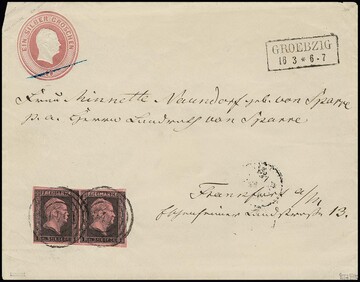 EIN SILBER GROSCHEN
GROEBZIG
18 3 * 6-7
Frau Minnette Naundorf geb. von Sparre
p. a. Herrn Landrath von Sparre
Frankfurt a/M
Landstrasse 13.
FREIMARKE FREIMARKE